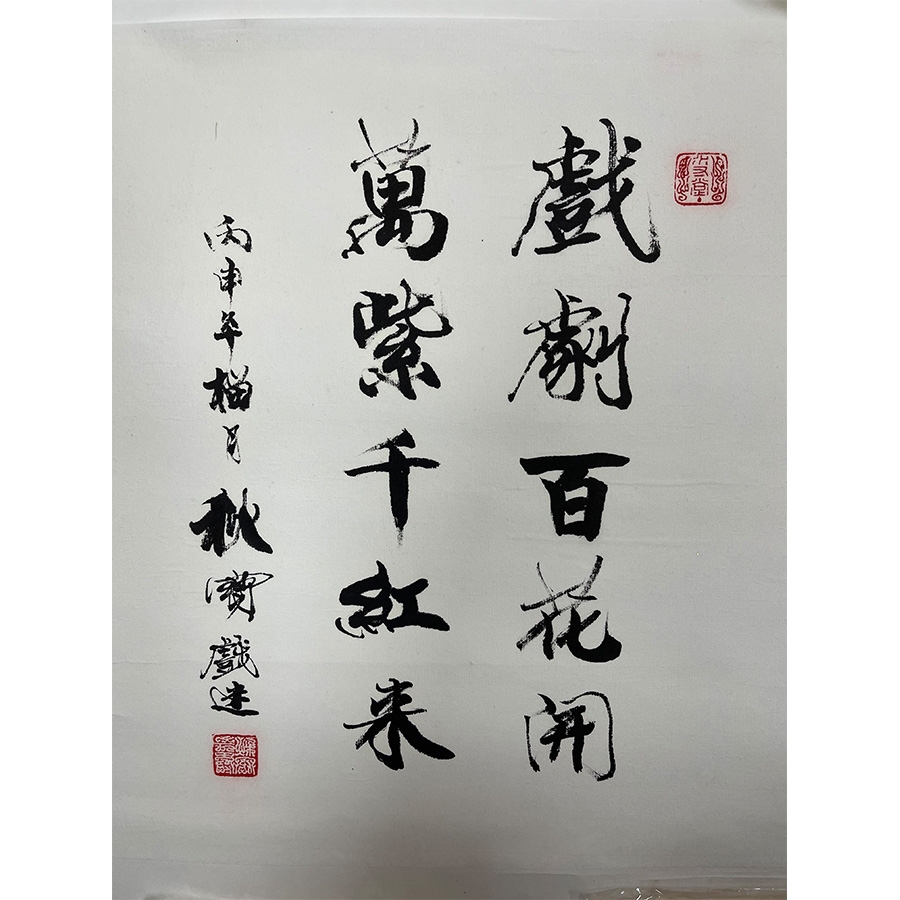 戲劇百花開
萬紫千紅来
丙申年榴月 秋寶戲迷